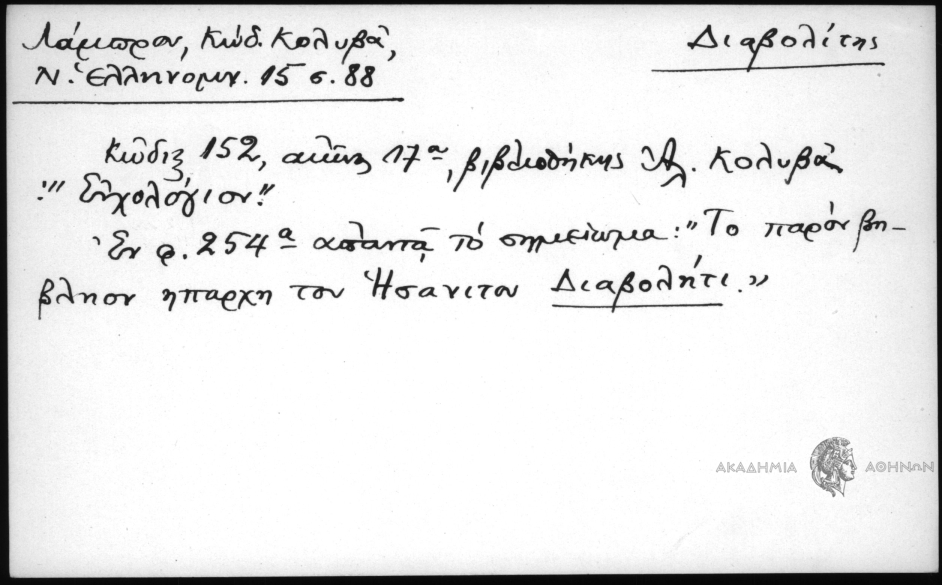 Λάμπρου, Κώδ. Κολυβᾶ,
Ν. Ἑλληνομν. 15 σ. 88
Διαβολίτης
Κῶδιξ 152, αἰῶνος 17ου, βιβλιοθήκης Ἀλ. Κολυβᾶ
"Εὐχολόγιον".
Ἐν φ. 254α ἀπαντᾷ τὸ σημείωμα: "Το παρὸν βη-
βλησν ηπαρχη του Ἠσανιτου Διαβολήτι."
ΑΚΑΔΗΜΙΑ ΑΘΗΝΩΝ